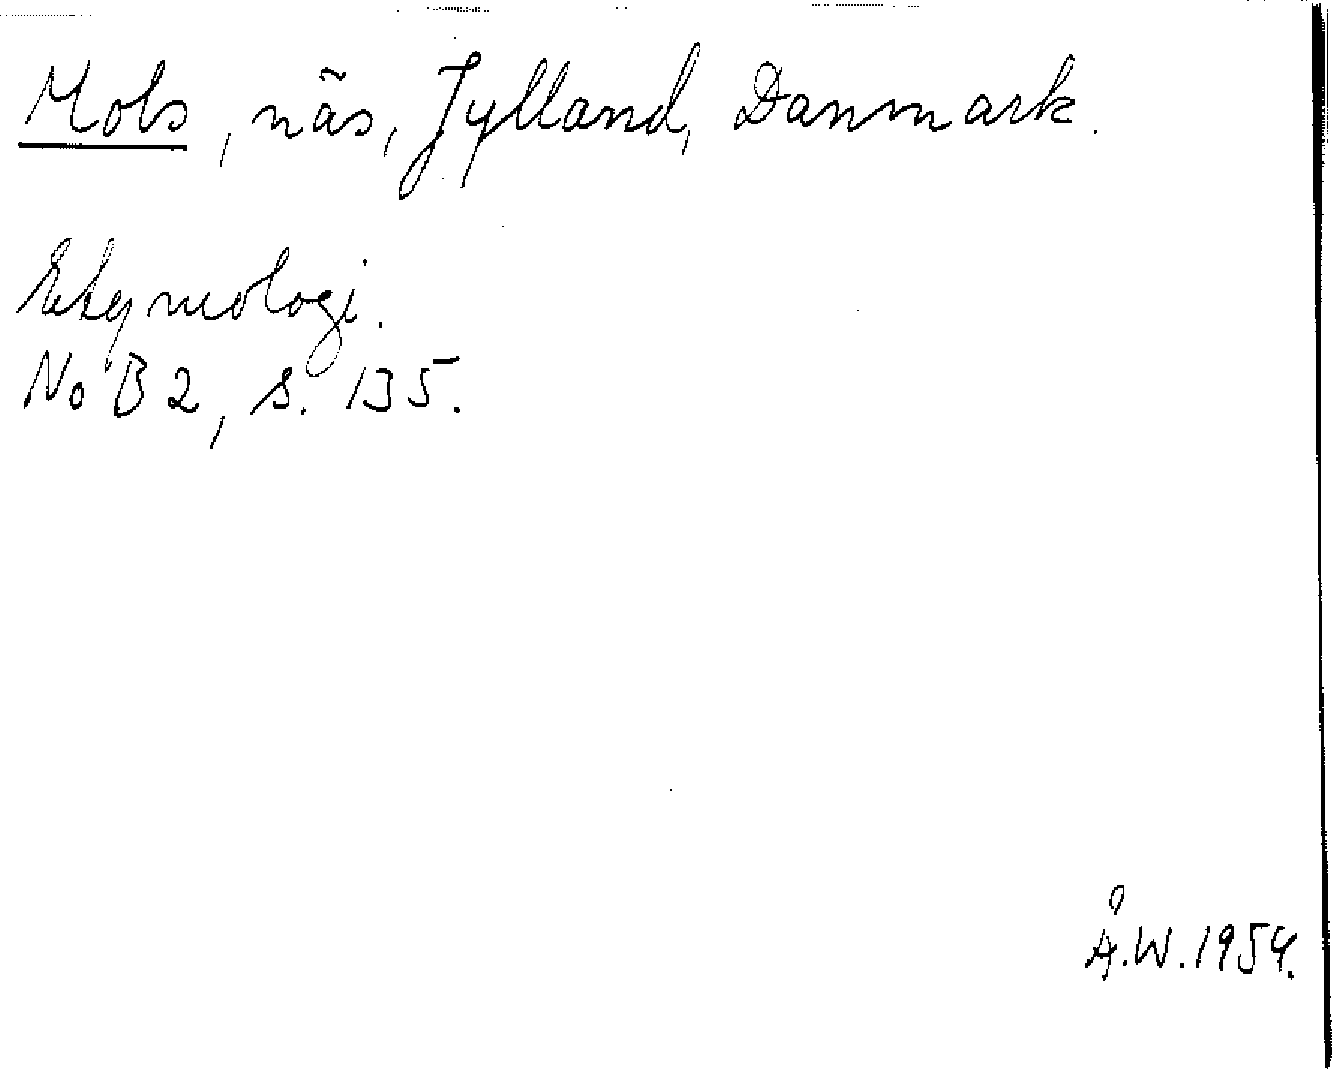 Mols, näs, Jylland, Danmark.
Etymologi.
NoB 2, s. 135.
Å.W. 1954.